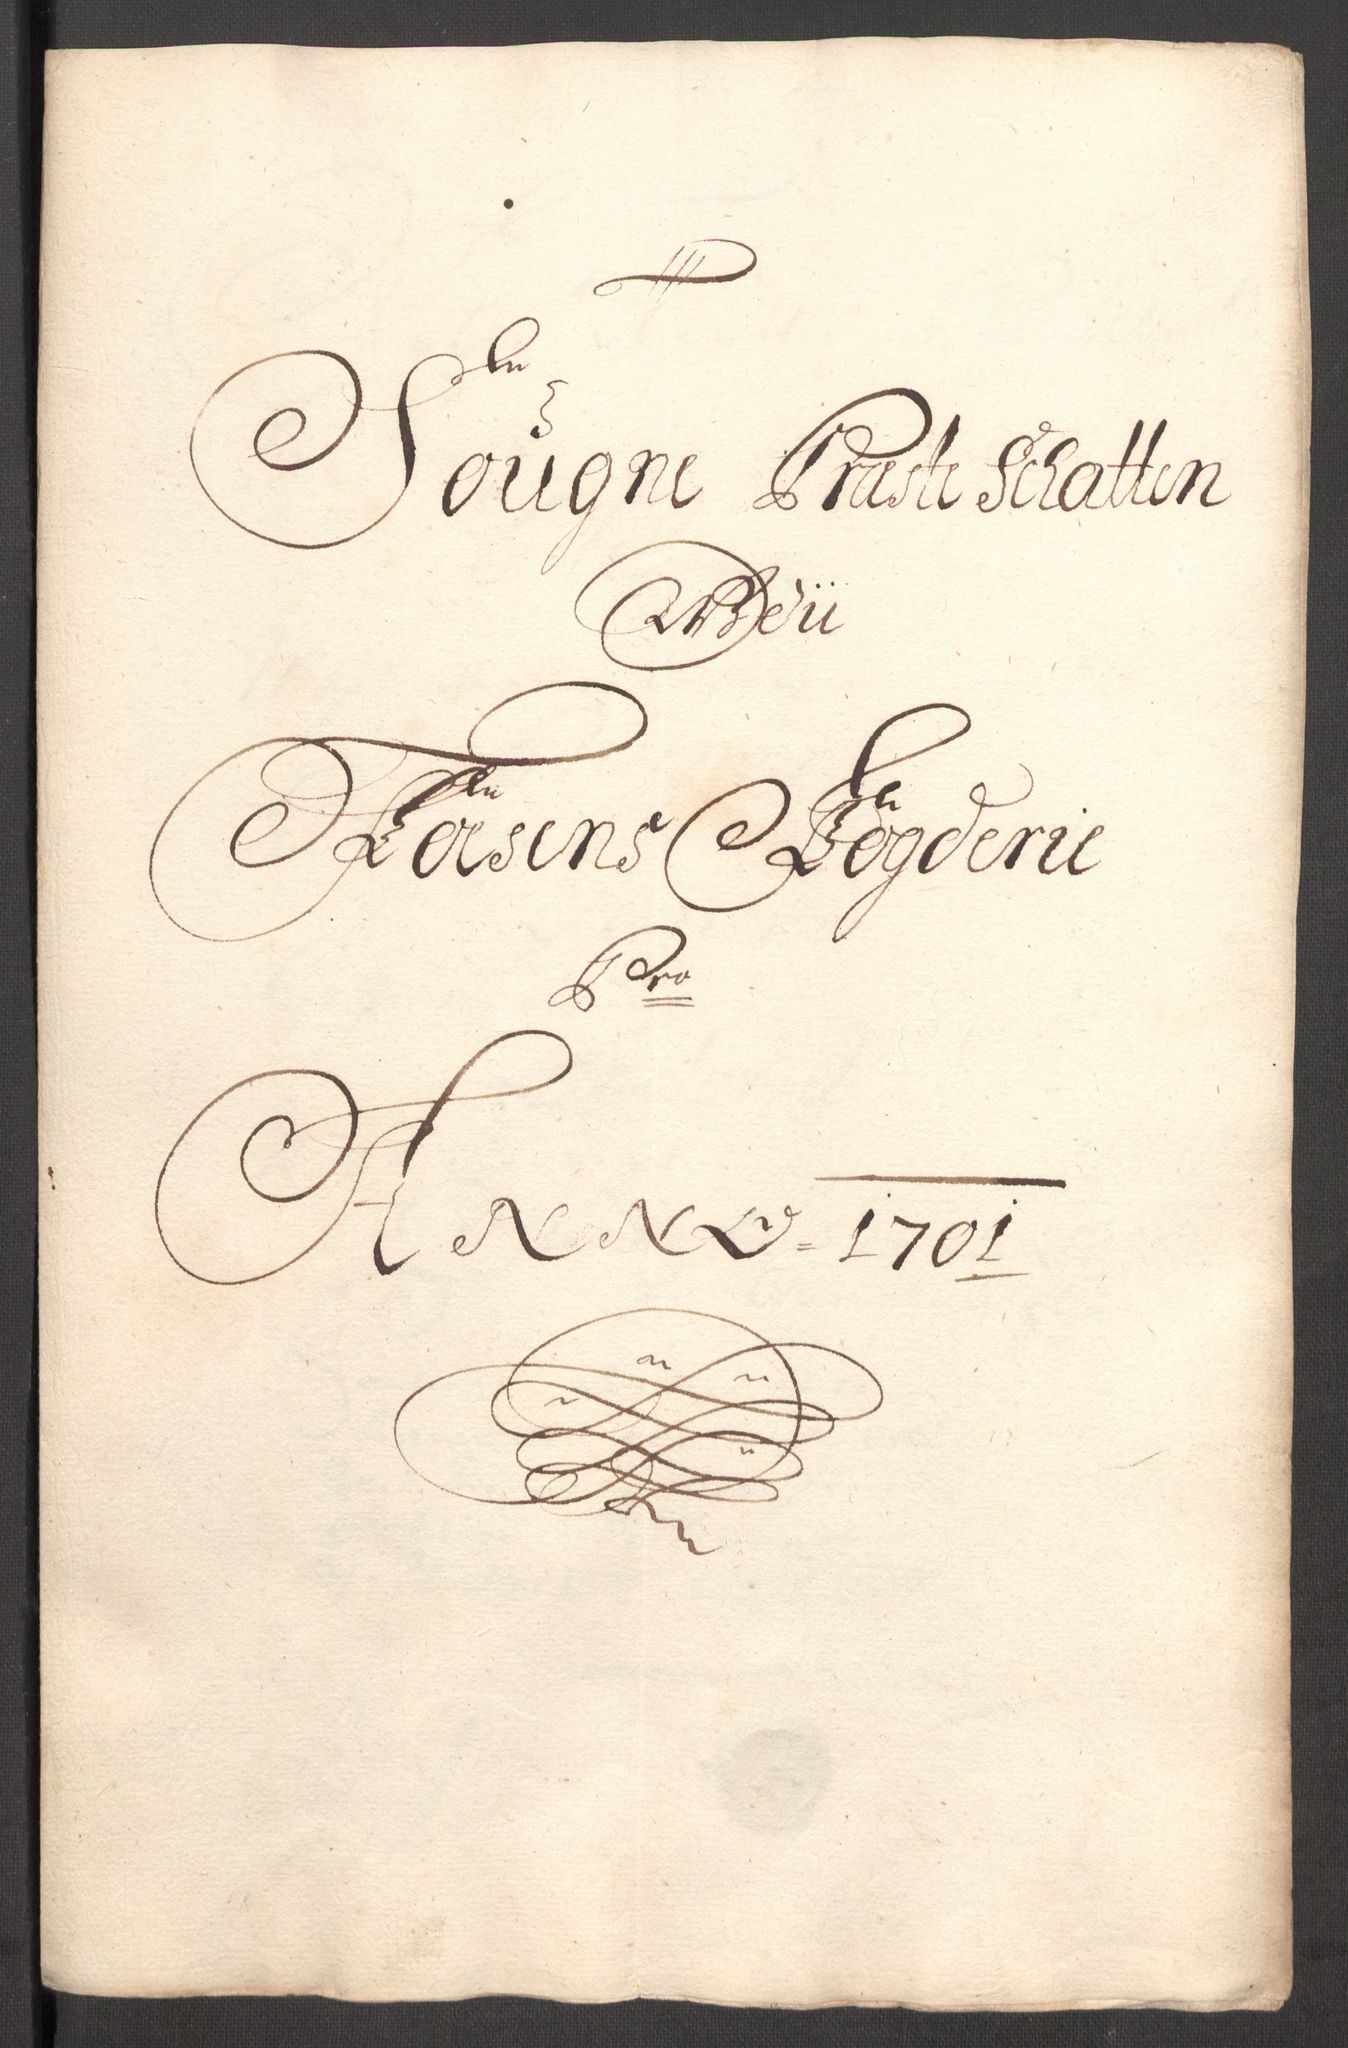 Sougne Præste Schatten
Fosens Fogderie
Pro
ANNO 1701